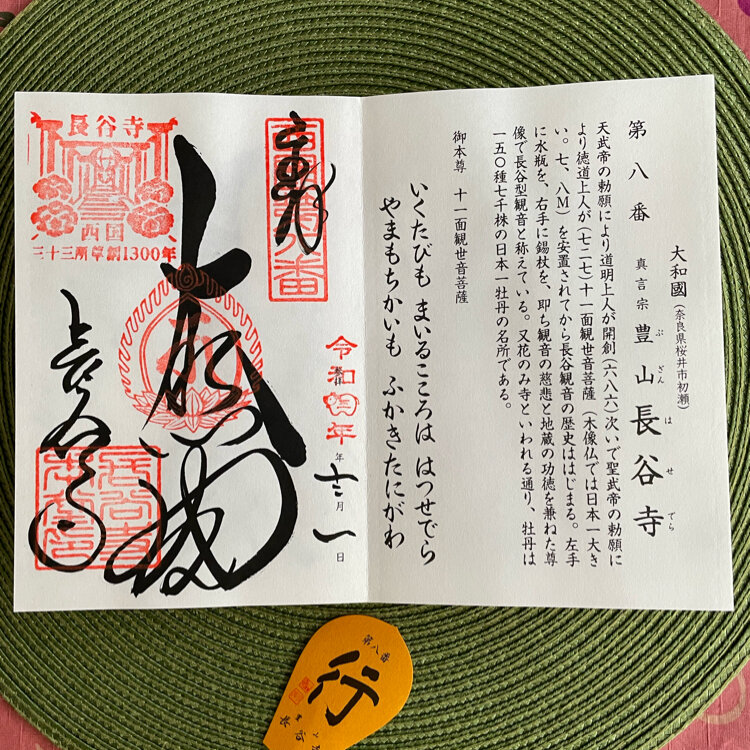 大和國(奈良県桜井市初瀬)
第八番 真言宗 豊山長谷寺
ぶざん はせでら
天武帝の勅願により道明上人が開創(六八六)次いで聖武帝の勅願に
より徳道上人が(七二七)十一面観世音菩薩(木像仏では日本一大き
い。七、八M)を安置されてから長谷観音の歴史ははじまる。左手
に水瓶を、右手に錫杖を、即ち観音の慈悲と地蔵の功徳を兼ねた尊
像で長谷型観音と称えている。又花のみ寺といわれる通り、牡丹は
一五〇種七千株の日本一牡丹の名所である。
御本尊 十一面観世音菩薩
いくたびも まいるこころは はつせでら
やまもちかいも ふかきたにがわ
令和四年
年 月一日
奉拝
大悲閣
長谷寺
長谷寺
西国
三十三所草創1300年
第八番
行